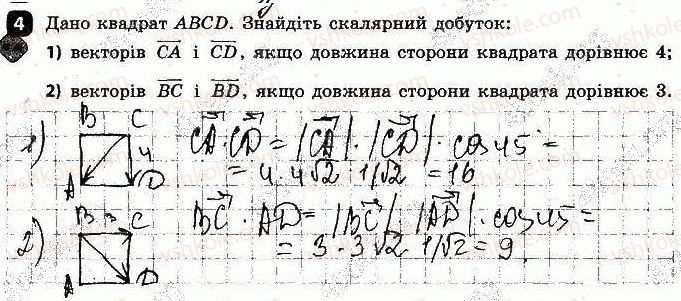 4 Дано квадрат ABCD. Знайдіть скалярний добуток:
1) векторів CA і CD, якщо довжина сторони квадрата дорівнює 4;
2) векторів BC і BD, якщо довжина сторони квадрата дорівнює 3.
B C
1) 4 CA · CD = |CA| · |CD| · cos 45 =
A D = 4 · 4√2 · 1/√2 = 16
B 3 C
2) BC · AD = |BC| · |AD| · cos 45 =
A D = 3 · 3√2 · 1/√2 = 9.